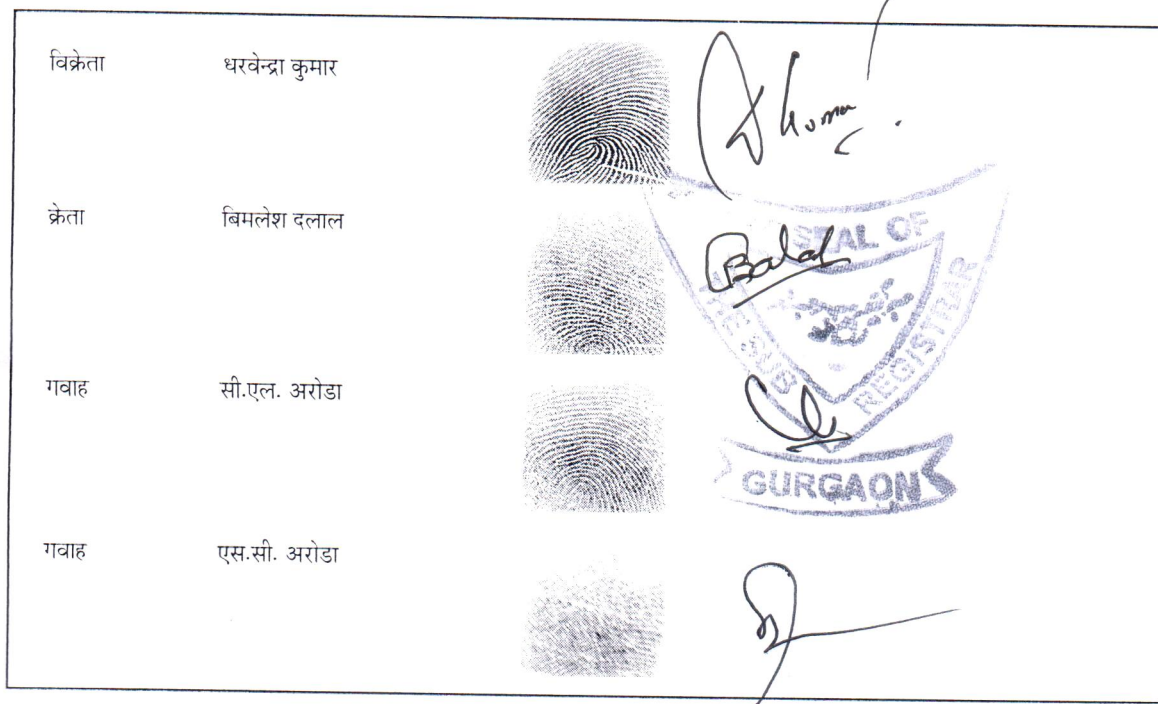 विक्रेता धरवेन्द्रा कुमार
क्रेता बिमलेश दलाल
गवाह सी.एल. अरोडा
गवाह एस.सी. अरोडा
SEAL OF
THE SUB REGISTRAR
GURGAON